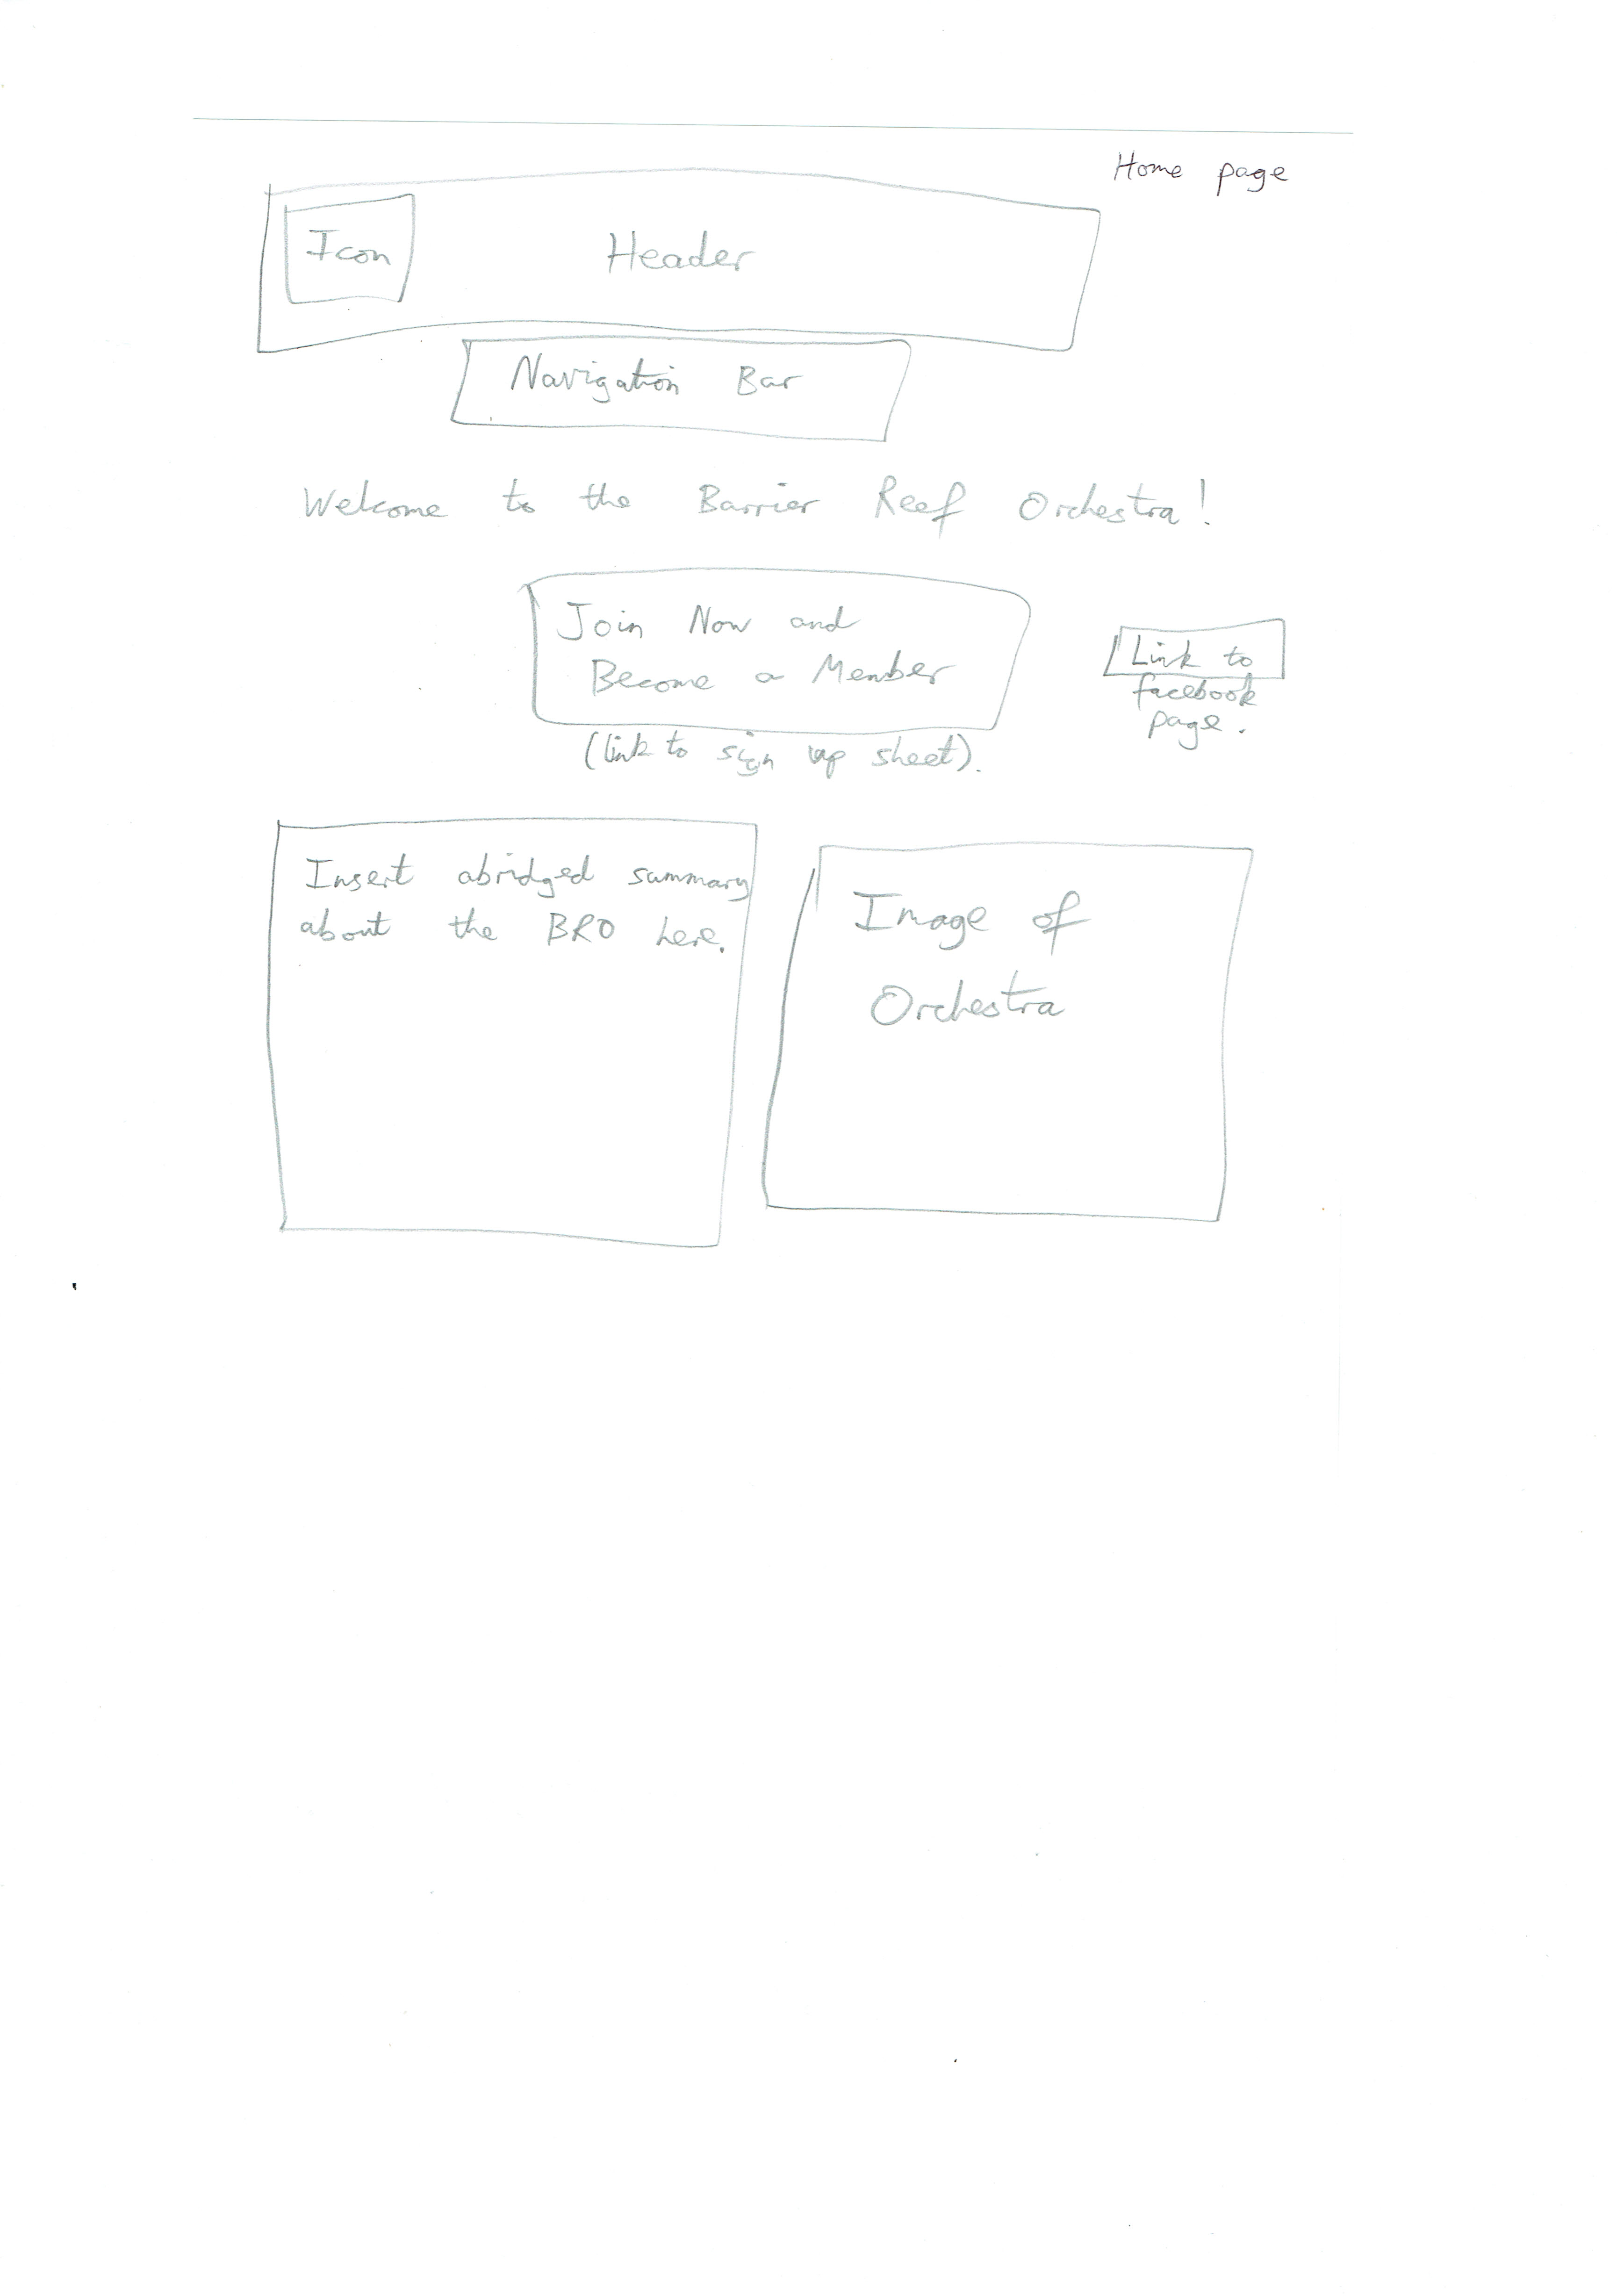 Home page
Icon
Header
Navigation Bar
Welcome to the Barrier Reef Orchestra!
Join Now and
Become a Member
(link to sign up sheet).
Link to
facebook
page.
Insert abridged summary
about the BRO here.
Image of
Orchestra